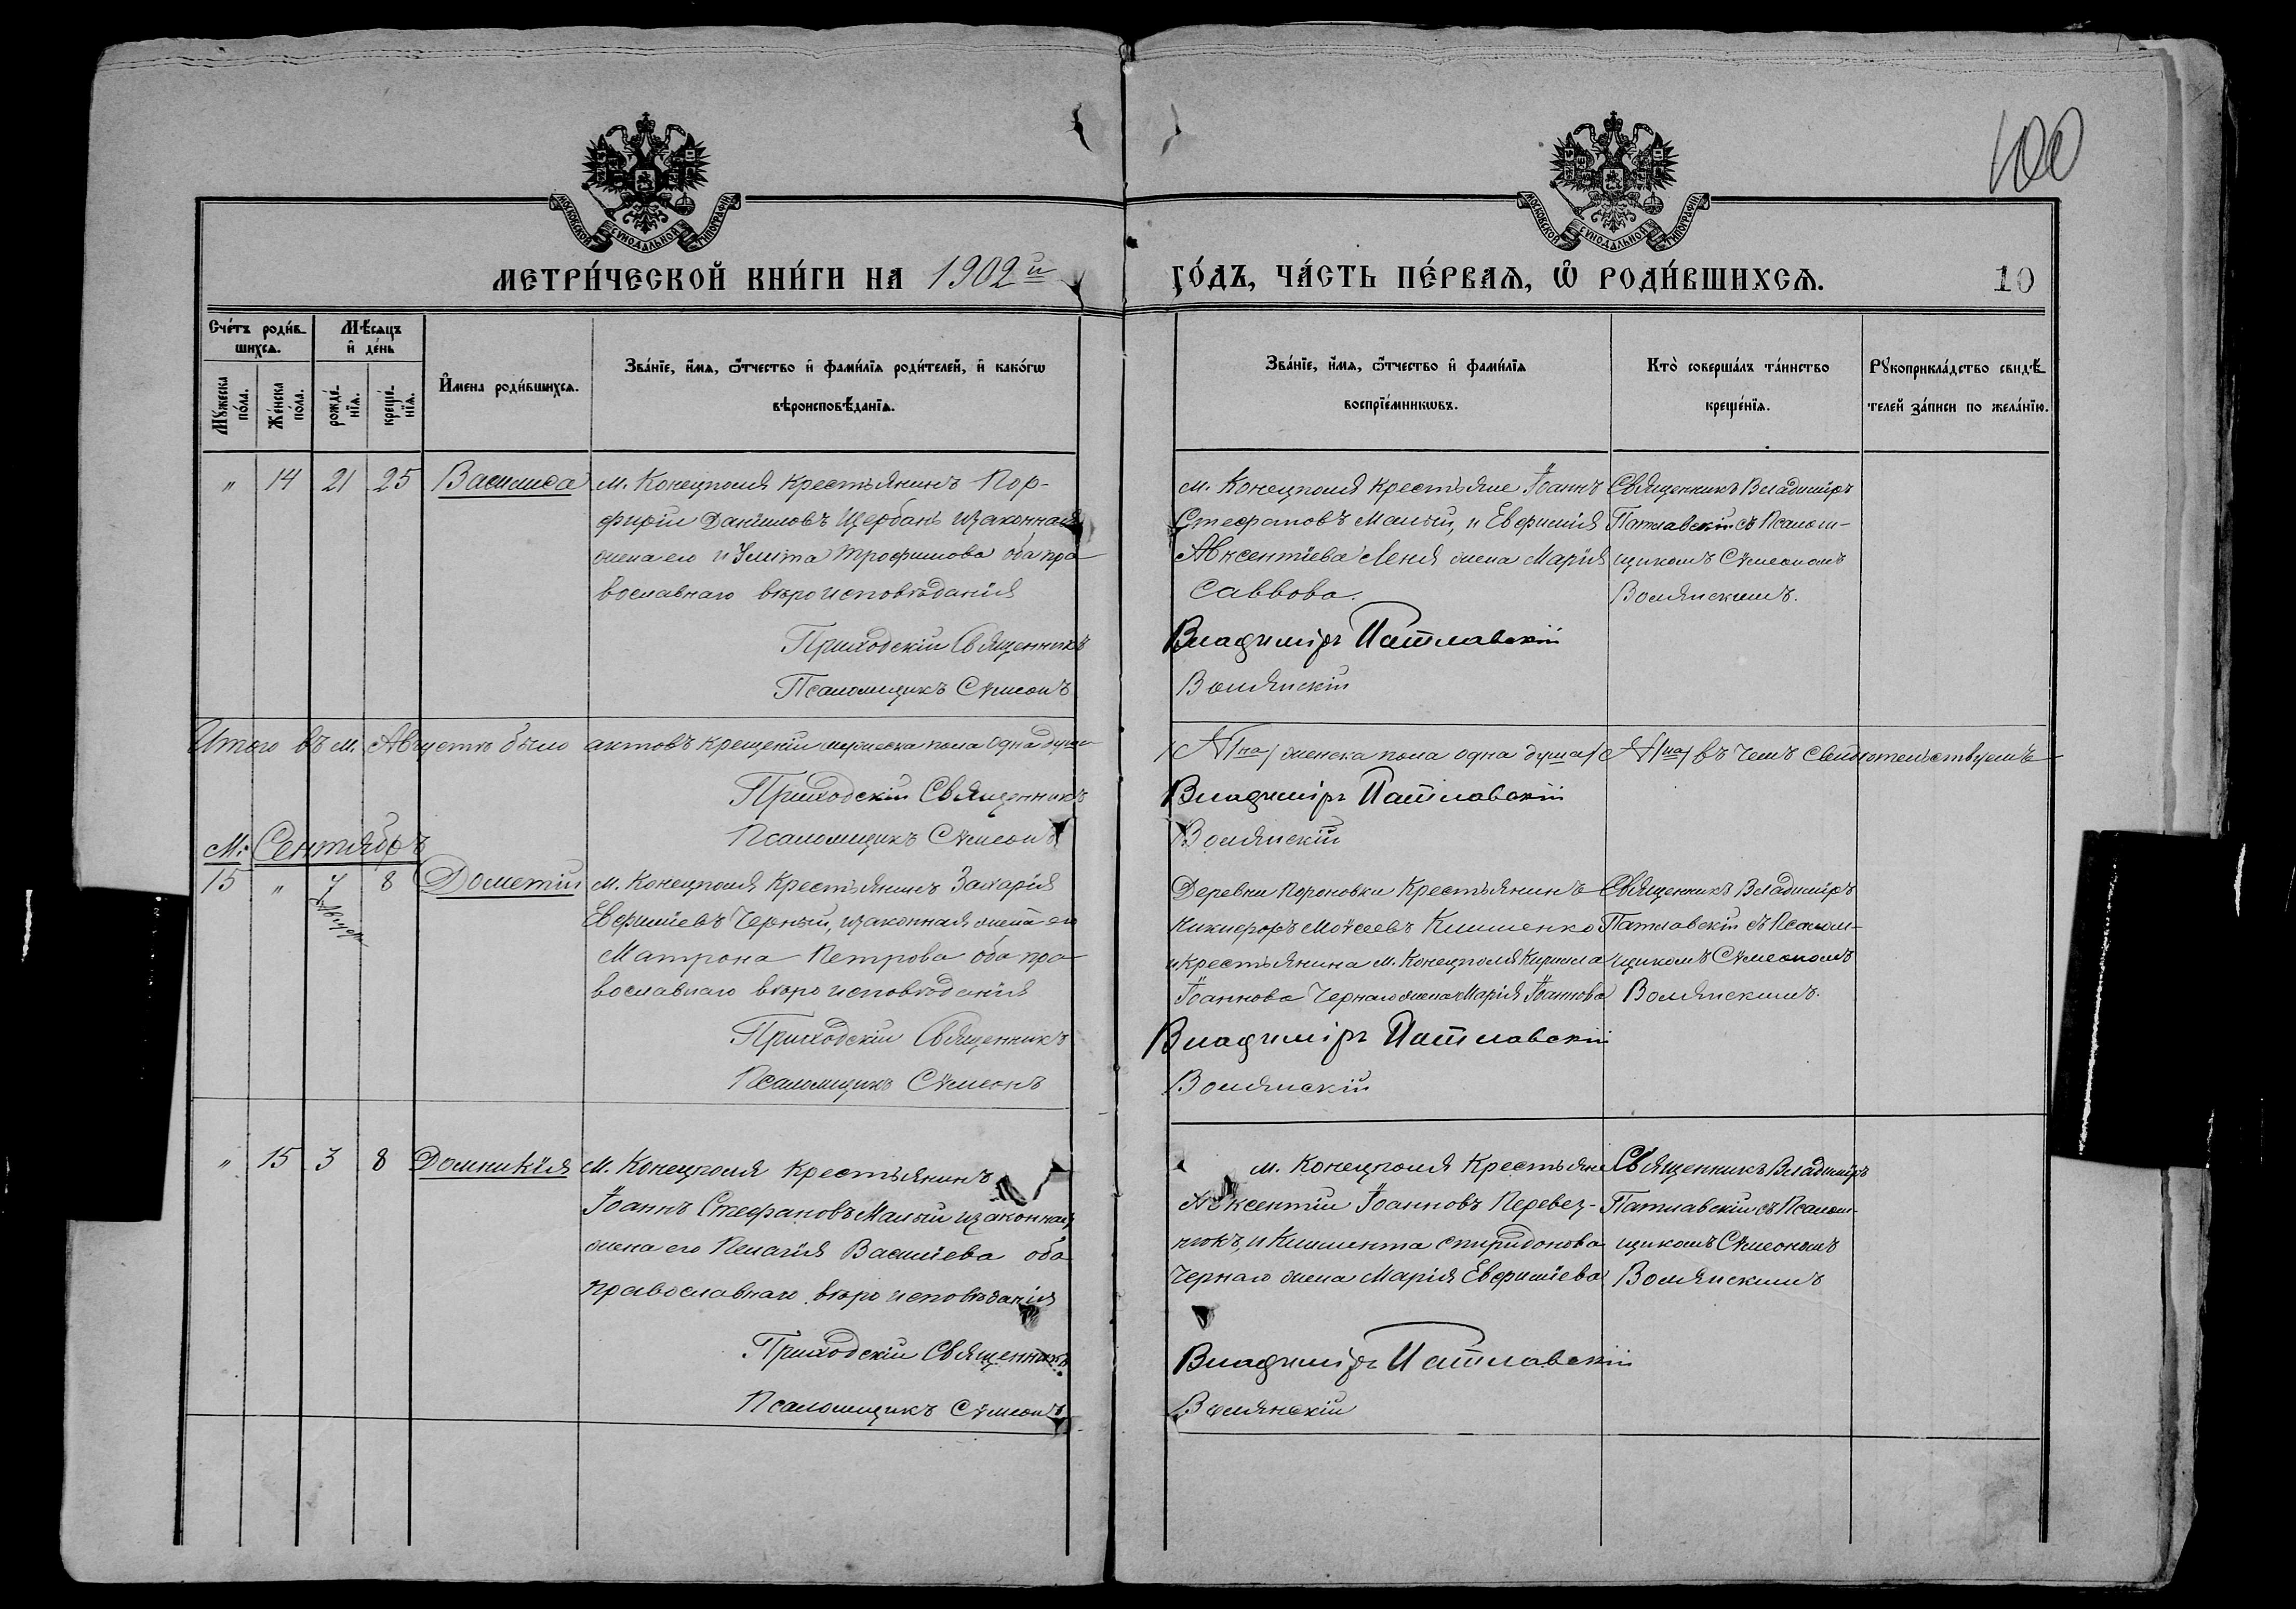 100
МОСКОВСКОЙ СѴНОДАЛЬНОЙ ТИПОГРАФІИ
МОСКОВСКОЙ СѴНОДАЛЬНОЙ ТИПОГРАФІИ
МЕТРИ́ЧЕСКОЙ КНИ́ГИ НА 1902й
ГО́ДЪ, ЧА́СТЬ ПЕ́РВАѦ, Ѽ РОДИ́ВШИХСѦ. 10
Сче́тъ роди́в-
шихсѧ.
Мѣ́сяцъ
и҆ де́нь
Мꙋ́жеска
по́ла.
Же́нска
по́ла.
рожде́-
нїѧ.
креще́-
нїѧ.
И҆мена роди́вшихсѧ.
Зва́нїе, и҆́мѧ, ѻ҆́тчество и҆ фами́лїѧ роди́телей, и҆ како́гѡ
вѣроисповѣ́данїѧ.
Зва́нїе, и҆́мѧ, ѻ҆́тчество и҆ фами́лїѧ
воспрїе́мникѡвъ.
Кто̀ соверша́лъ та́инство
креще́нїѧ.
Рꙋкоприкла́дство свидѣ́-
телей за́писи по жела́нїю.
" 14 21 25 Василиса
м. Конецполя Крестьянинъ Пор-
фирій Даніиловъ Щербань и законная
жена его Иулита Трофимова оба пра-
вославнаго вѣроисповѣданія
Приходскій Священникъ
Псаломщикъ Сѵмеонъ
м. Конецполя крестьяне Іоаннъ
Стефановъ Малый, и Евфимія
Авксентіева Леня жена Марія
Саввова.
Владиміръ Патлавскій
Волянскій
Священникъ Владиміръ
Патлавскій съ Псалом-
щикомъ Сѵмеономъ
Волянскимъ.
Итого въ м. Августѣ было актовъ крещеній мужеска пола одна душа
/№1на/ женска пола одна душа /№1на/ въ чемъ свидѣтельствуемъ
Приходскій Священникъ
Псаломщикъ Сѵмеонъ
Владиміръ Патлавскій
Волянскій
М: Сентябрь
15 " 7 8 Дометій
м. Конецполя Крестьянинъ Захарія
Евфиміевъ Черный, и законная жена его
Матрона Петрова оба пра-
вославнаго вѣроисповѣданія
Приходскій Священникъ
Псаломщикъ Сѵмеонъ
Деревни Пороновки Крестьянинъ
Никифоръ Моѵсеевъ Клименко
и крестьянина м. Конецполя Кирилла
Іоаннова Чернаго жена Марія Іоаннова
Владиміръ Патлавскій
Волянскій
Священникъ Владиміръ
Патлавскій съ Псалом-
щикомъ Сѵмеономъ
Волянскимъ.
" 15 3 8 Домникія
м. Конецполя Крестьянинъ
Іоаннъ Стефановъ Малый и законная
жена его Пелагія Василіева оба
православнаго вѣроисповѣданія
Приходскій Священникъ
Псаломщикъ Сѵмеонъ
м. Конецполя Крестьяне
Авксентій Іоанновъ Перевез-
нюкъ, и Климента Спиридонова
Чернаго жена Марія Евфиміева
Владиміръ Патлавскій
Волянскій
Священникъ Владиміръ
Патлавскій съ Псалом-
щикомъ Сѵмеономъ
Волянскимъ